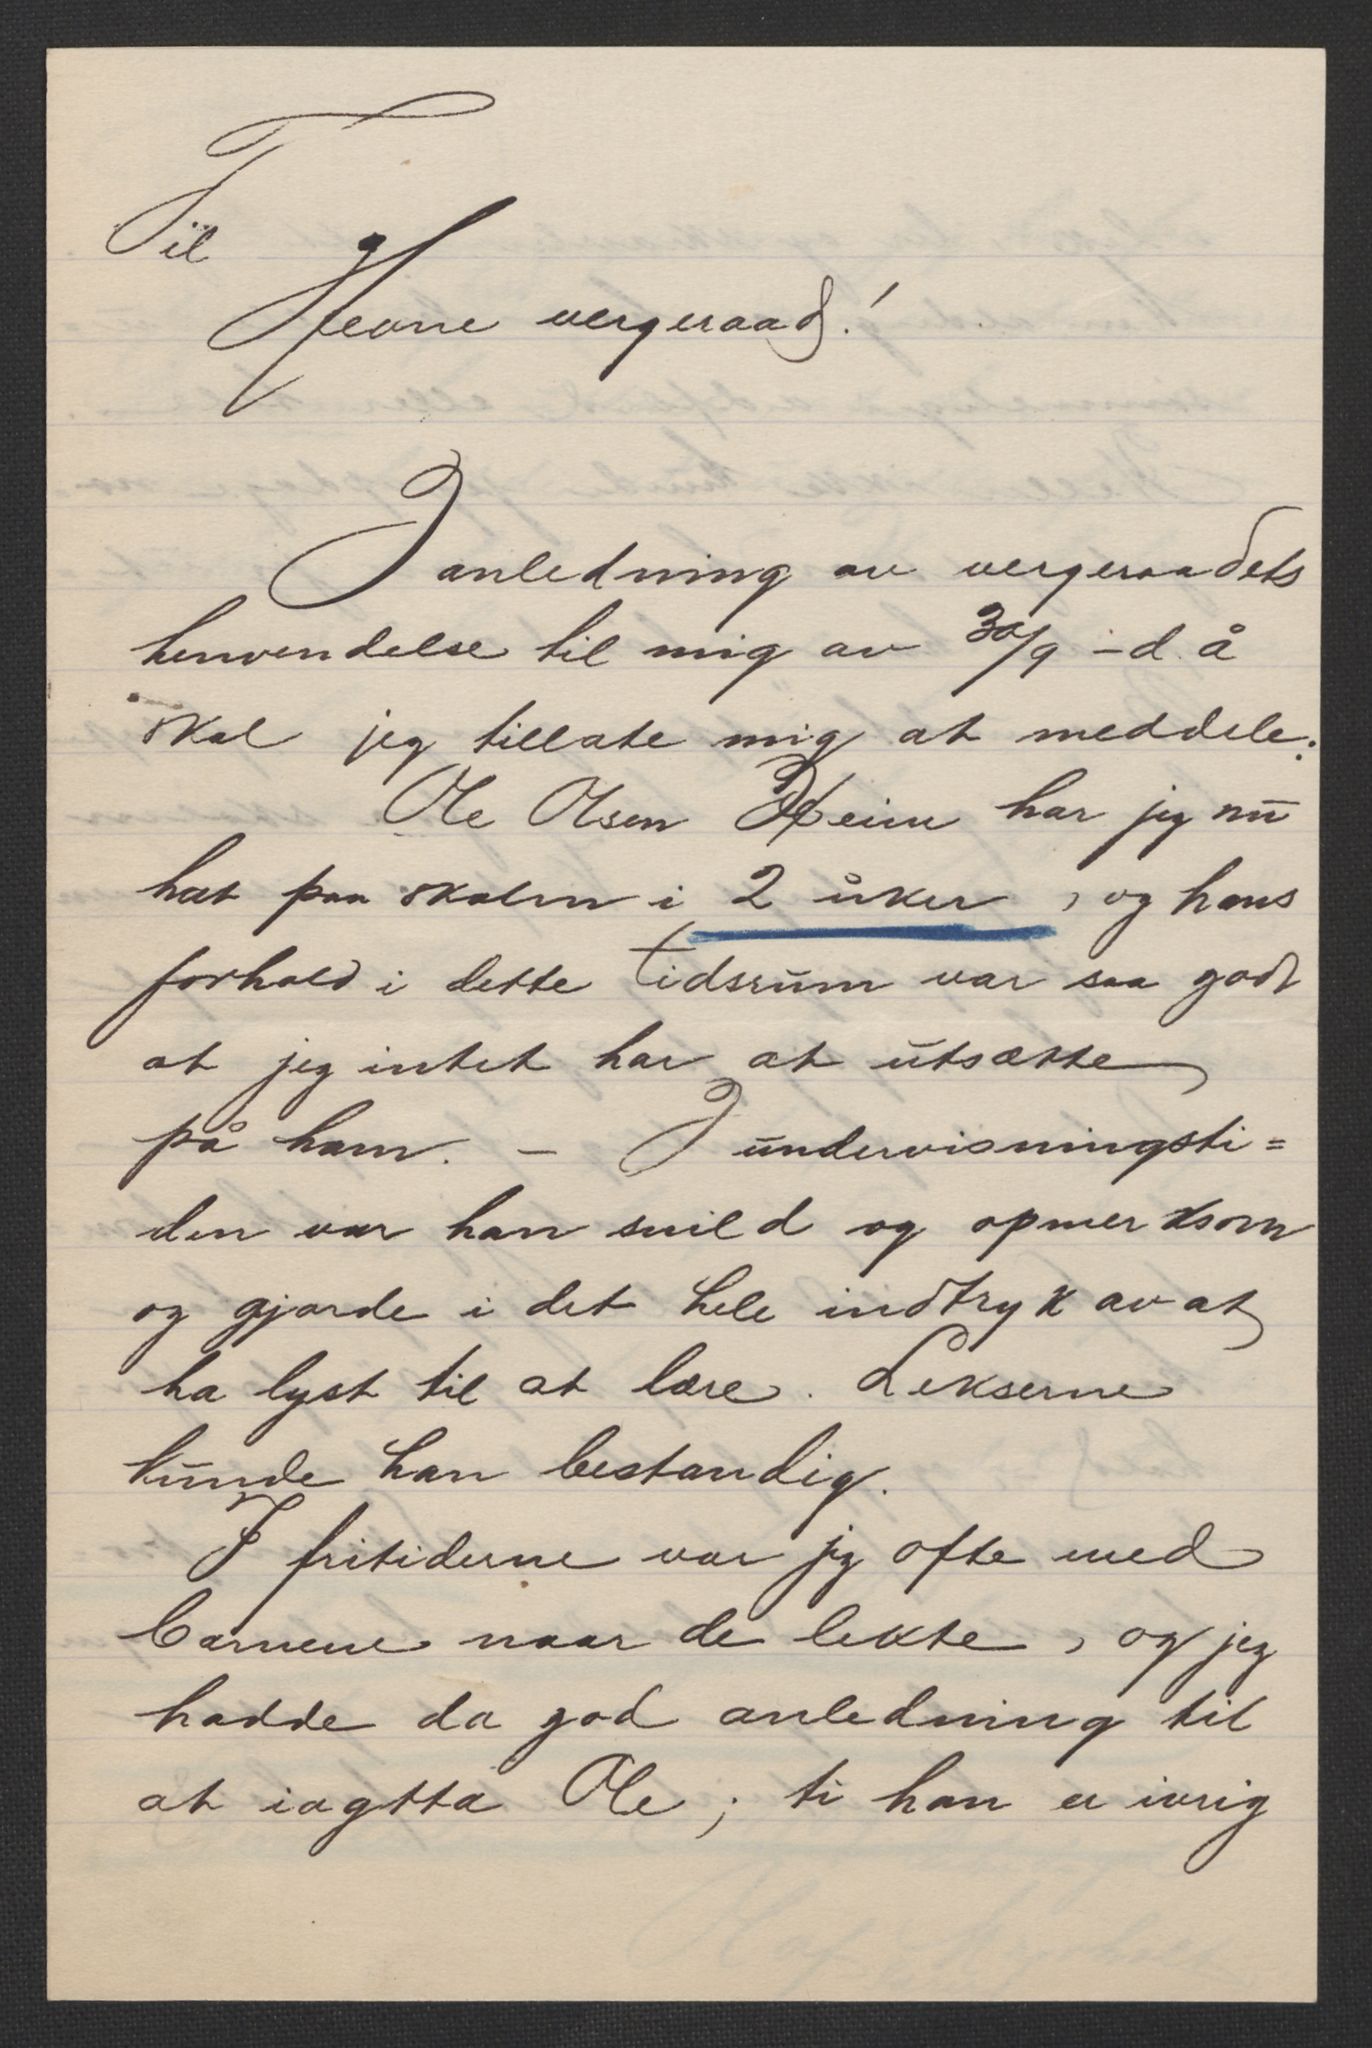 Til
Hevne vergeraad!
I anledning av vergeraadets
henvendelse til mig av 30/9 - d. å
skal jeg tillate mig at meddele:
Ole Olsen Heim har jeg nu
hat paa skolen i 2 uker, og hans
forhold i dette tidsrum var saa godt
at jeg intet har at utsætte
på ham. - I undervisningsti=
den var han snild og opmerksom
og gjorde i det hele indtryk av at
ha lyst til at lære. Lekserne
kunde han bestandig.
I fritiderne var jeg ofte med
barnene naar de lekte, og jeg
hadde da god anledning til
at iagtta Ole; ti han er ivrig